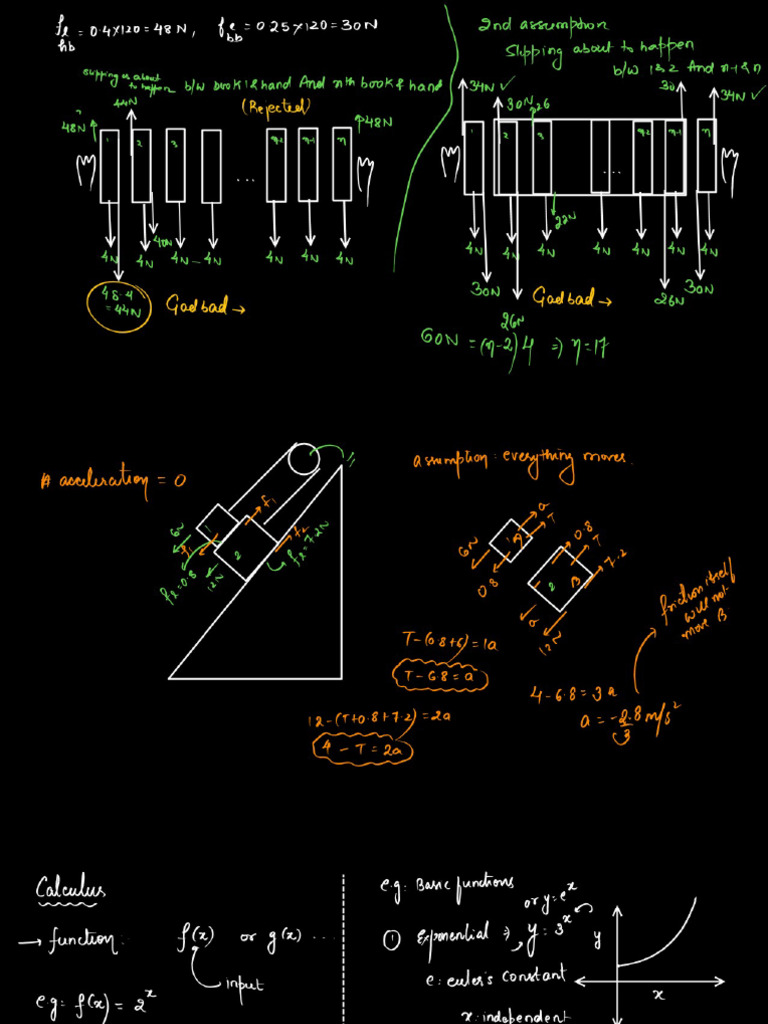 fl = 0.4×120 = 48 N, fl = 0.25×120 = 30N
hb bb
2nd assumption
Slipping about to happen
b/w 1&2 And n-1 & n
Slipping is about
to happen b/w book 1 & hand And nth book & hand
(Rejected)
48N
44N
48N
1 2 3 n-2 n-1 n
...
40N
4N 4N 4N 4N 4N 4N 4N
48-4
= 44N
Gadbad →
34N ✓
30N
26
30
34N ✓
1 2 3 n-2 n-1 n
...
22N
4N 4N 4N 4N 4N 4N 4N
30N
26N
26N
30N
Gadbad →
60N = (n-2)4 ⇒ n=17
acceleration = 0
assumption: everything moves.
f1
6N
1
f1
2
f2
fl=7.2N
fl=0.8
12N
a
T
6N
A
0.8
0.8
T
7.2
2
B
a
12N
friction itself
will not
move B
T-(0.8+6)=1a
T-6.8=a
12-(T+0.8+7.2)=2a
4-T=2a
4-6.8=3a
a = -2.8 m/s²
3
Calculus
→ function:
f(x) or g(x) ...
input
e.g: f(x) = 2^x
e.g: Basic functions
or y=e^x
① Exponential ⇒ y=3^x
e: euler's constant
x: independent
y
x